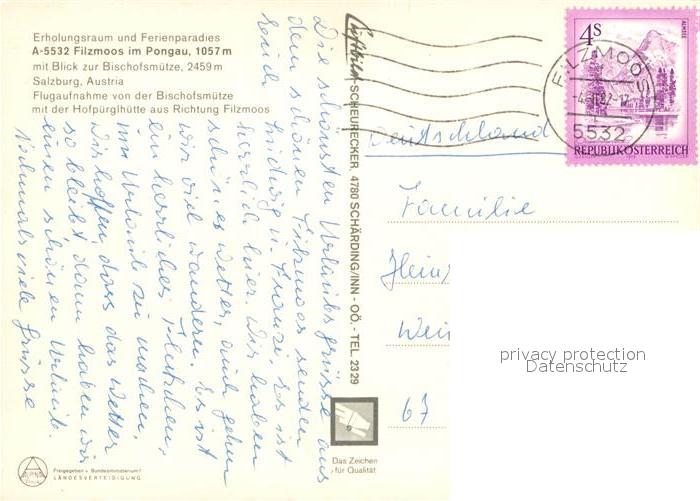 Erholungsraum und Ferienparadies
A-5532 Filzmoos im Pongau, 1057 m
mit Blick zur Bischofsmütze, 2459 m
Salzburg, Austria
Flugaufnahme von der Bischofsmütze
mit der Hofpürglhütte aus Richtung Filzmoos
Die schönsten Urlaubsgrüsse aus
dem schönen Filzmoos senden
Euch Ludwig u. Es ist
herrlich hier. Wir haben
schönes Wetter, auch gehen
wir viel wandern. Es ist
ein herrliches Fleckchen,
um Urlaub zu machen.
Wir hoffen, dass das Wetter
so bleibt, dann haben wir
einen schönen Urlaub.
Nochmals viele Grüsse
Luftbild SCHEURECKER, 4780 SCHÄRDING/INN - OÖ. - TEL. 23 29
4 S
ALMSEE
REPUBLIK ÖSTERREICH
FILZMOOS
5532
Deutschland
Familie
Hein
Wei
67
privacy protection
Datenschutz
Das Zeichen
für Qualität
Freigegeben v. Bundesministerium f.
LANDESVERTEIDIGUNG